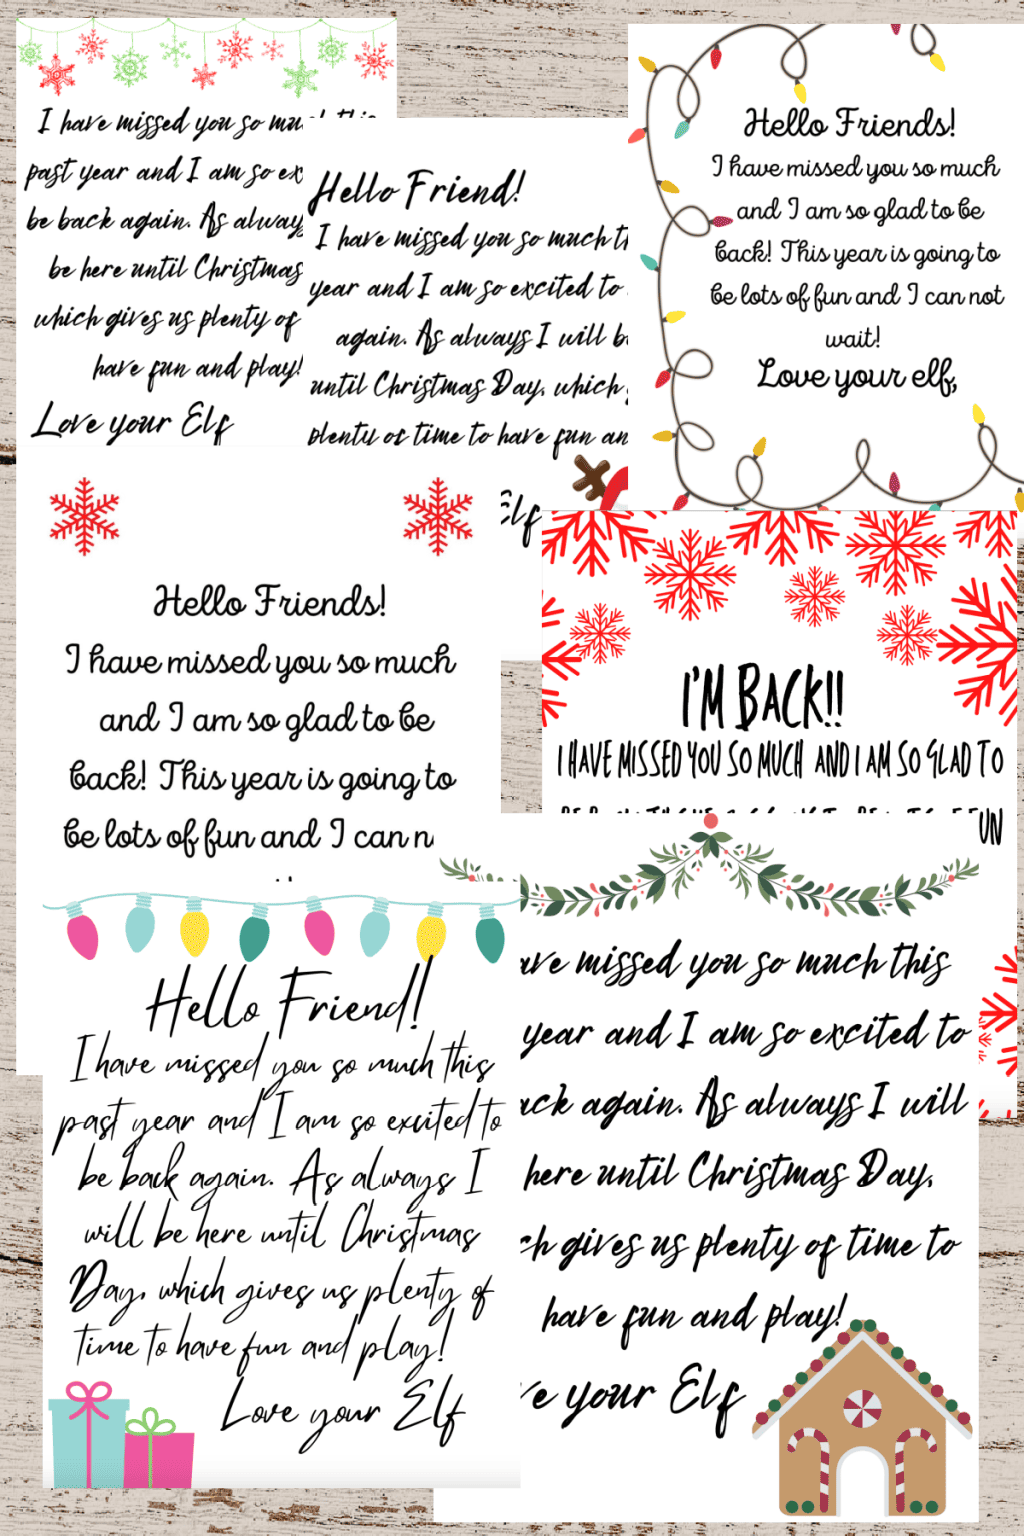 I have missed you so much this
past year and I am so ex
be back again. As always
be here until Christmas
which gives us plenty of
have fun and play!
Love your Elf
Hello Friend!
I have missed you so much th
year and I am so excited to
again. As always I will b
until Christmas Day, which g
plenty of time to have fun an
Elf
Hello Friends!
I have missed you so much
and I am so glad to be
back! This year is going to
be lots of fun and I can not
wait!
Love your elf,
Hello Friends!
I have missed you so much
and I am so glad to be
back! This year is going to
be lots of fun and I can n
I'M BACK!!
I HAVE MISSED YOU SO MUCH AND I AM SO GLAD TO
FUN
Hello Friend!
I have missed you so much this
past year and I am so excited to
be back again. As always I
will be here until Christmas
Day, which gives us plenty of
time to have fun and play!
Love your Elf
ave missed you so much this
year and I am so excited to
ack again. As always I will
here until Christmas Day,
ch gives us plenty of time to
have fun and play!
e your Elf